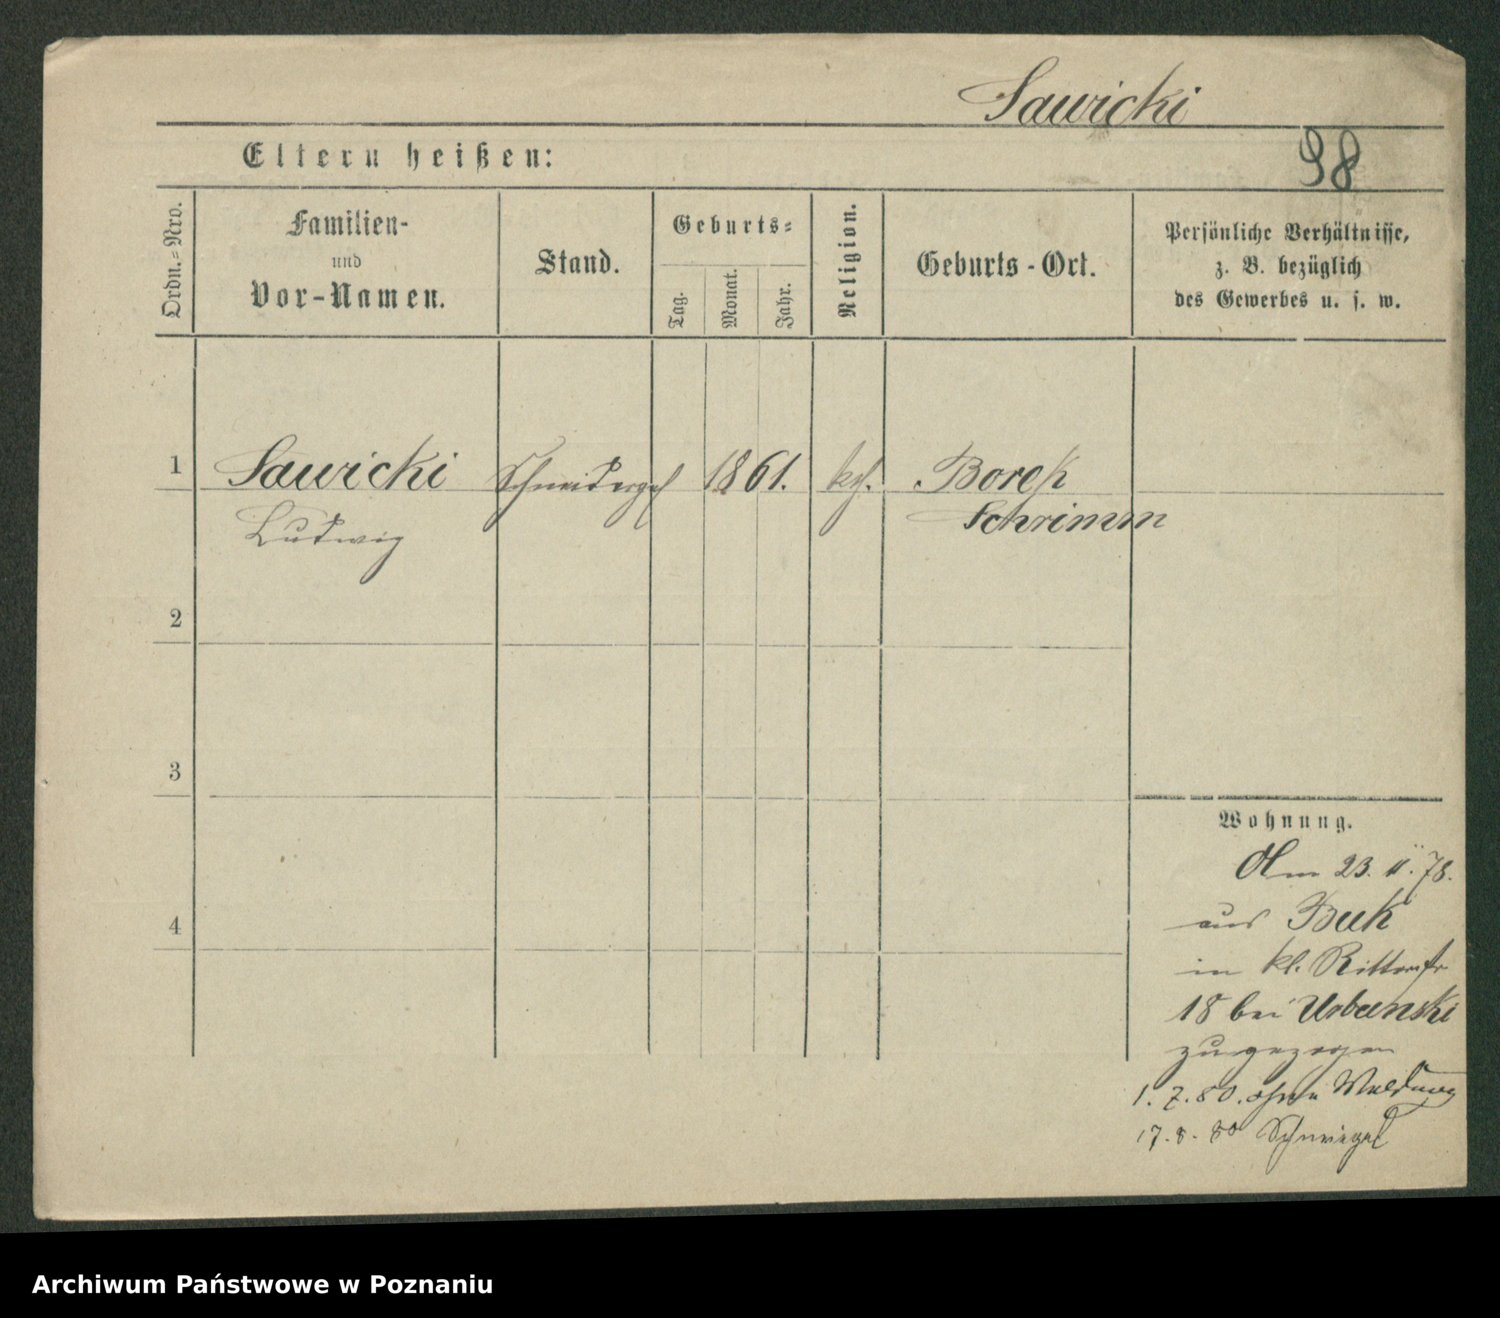 Sawicki
Eltern heißen:
98
Ordn.-Nro.
Familien-
und
Vor-Namen.
Stand.
Geburts-
Tag.
Monat.
Jahr.
Religion.
Geburts-Ort.
Persönliche Verhältnisse,
z. B. bezüglich
des Gewerbes u. s. w.
1 Sawicki Schneiderges 1861. kth. Borek
Ludwig Schrimm
2
3
4
Wohnung.
Am 23. 11. 78.
aus Buk
in kl. Ritterstr
18 bei Urbanski
zugezogen
1. 7. 80. ohne Meldung
17. 8. 80 Schmiegel
Archiwum Państwowe w Poznaniu